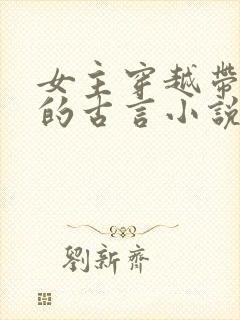 女主穿越帶
的古言小說
劉新齊